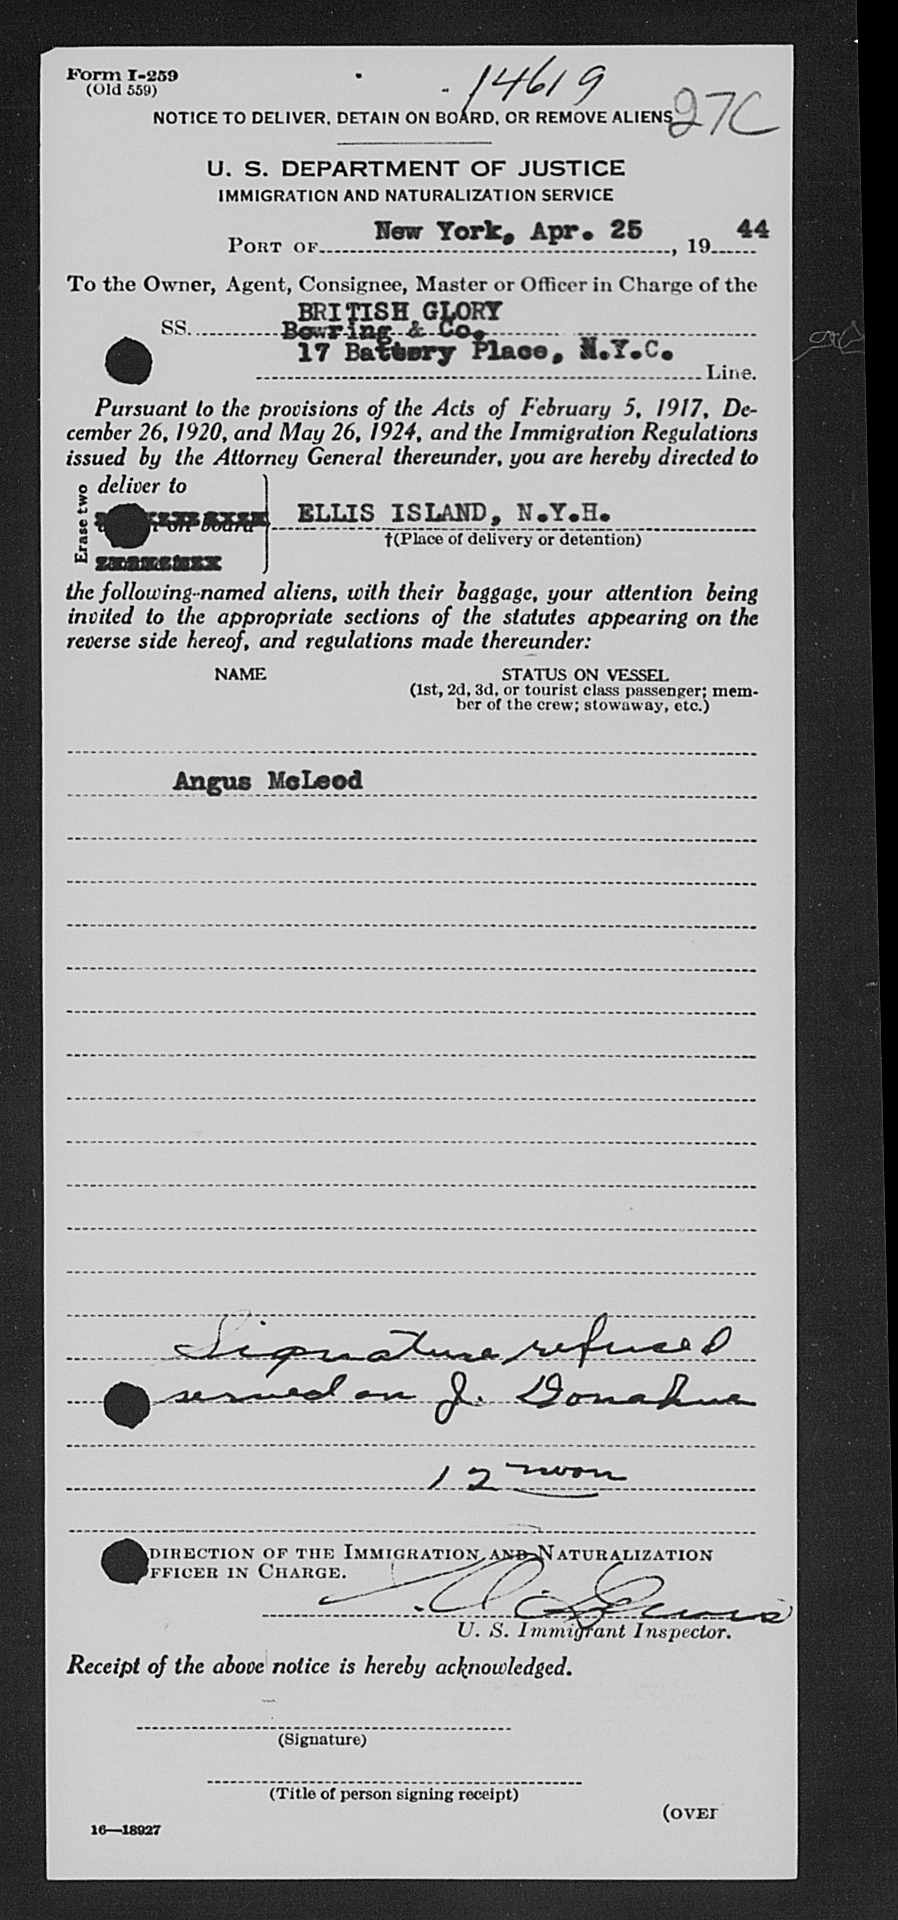 Form I-259
(Old 559)
14619
27C
NOTICE TO DELIVER, DETAIN ON BOARD, OR REMOVE ALIENS
U. S. DEPARTMENT OF JUSTICE
IMMIGRATION AND NATURALIZATION SERVICE
PORT OF New York, Apr. 25, 1944
To the Owner, Agent, Consignee, Master or Officer in Charge of the
BRITISH GLORY
SS. Bowring & Co.
17 Battery Place, N.Y.C.
Line.
Pursuant to the provisions of the Acts of February 5, 1917, De-
cember 26, 1920, and May 26, 1924, and the Immigration Regulations
issued by the Attorney General thereunder, you are hereby directed to
Erase two
deliver to
on board
ELLIS ISLAND, N.Y.H.
†(Place of delivery or detention)
the following-named aliens, with their baggage, your attention being
invited to the appropriate sections of the statutes appearing on the
reverse side hereof, and regulations made thereunder:
NAME STATUS ON VESSEL
(1st, 2d, 3d, or tourist class passenger; mem-
ber of the crew; stowaway, etc.)
Angus McLeod
Signature refused
served on J. Donahue
12 noon
DIRECTION OF THE IMMIGRATION AND NATURALIZATION
FFICER IN CHARGE.
U. S. Immigrant Inspector.
Receipt of the above notice is hereby acknowledged.
(Signature)
(Title of person signing receipt)
(OVER
16—18927